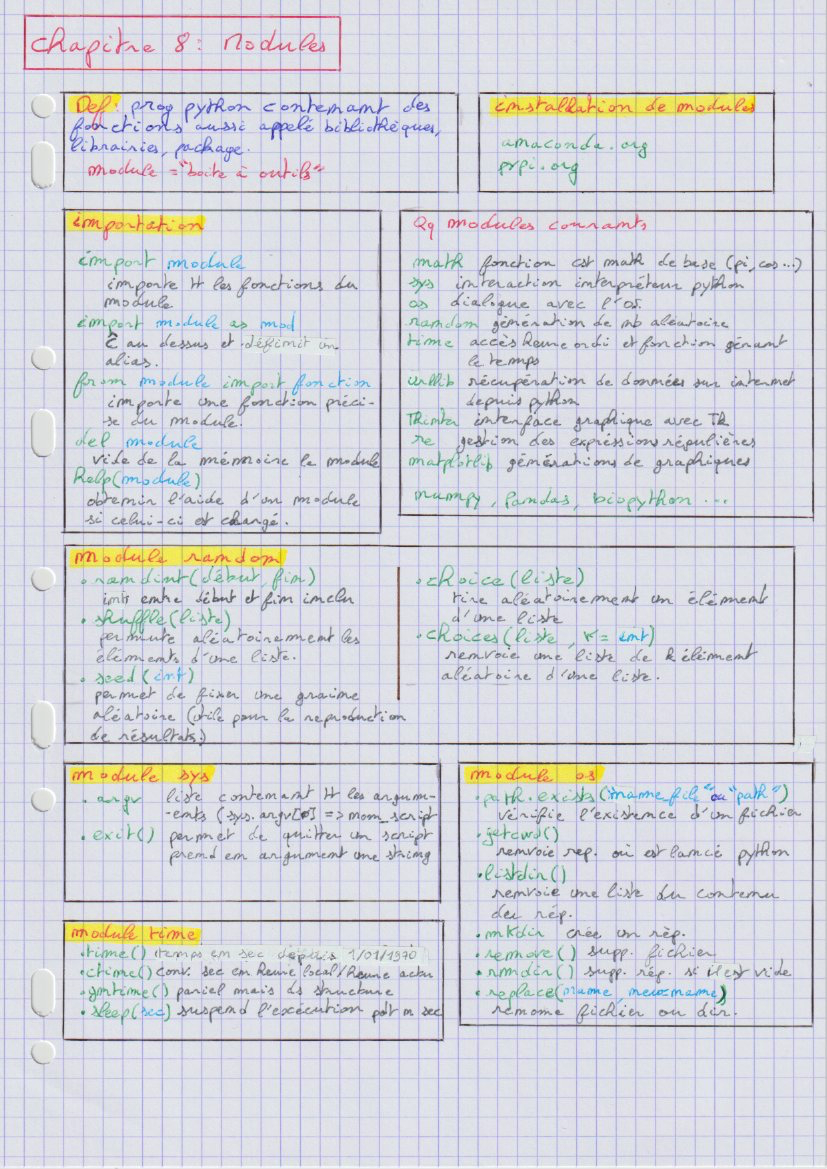 Chapitre 8 : Modules
Def : prog python contenant des
fonctions aussi appelé bibliothèques,
librairies, package.
module = "boite à outils"
installation de modules
anaconda.org
pypi.org
importation
import module
importe tt les fonctions du
module
import module as mod
ĉ au dessus et définit un
alias.
from module import fonction
importe une fonction préci-
-se du module.
del module
vide de la mémoire le module
help(module)
obtenir l'aide d'un module
si celui-ci est chargé.
Qq modules courants
math fonction cst math de base (pi, cos...)
sys interaction interpréteur python
os dialogue avec l'os.
random génération de nb aléatoire
time accès heure ordi et fonction gérant
le temps
urllib récupération de données sur internet
depuis python
Tkinter interface graphique avec Tk
re gestion des expressions régulières
matplotlib générations de graphiques
numpy, Pandas, biopython ...
module random
• randint(début, fin)
int entre début et fin inclu
• shuffle(liste)
permute aléatoirement les
éléments d'une liste.
• seed(int)
permet de fixer une graine
aléatoire (utile pour la reproduction
de résultats)
• choice(liste)
tire aléatoirement un élément
d'une liste
• choices(liste, k = int)
renvoie une liste de k élément
aléatoire d'une liste.
module sys
• argv liste contenant tt les argum-
-ents (sys.argv[0] => nom_script
• exit() permet de quitter un script
prend en argument une string
module os
• path.exists("name file" ou "path")
vérifie l'existence d'un fichier
• getcwd()
renvoie rep. où est lancé python
• listdir()
renvoie une liste du contenu
du rép.
• mkdir crée un rép.
• remove() supp. fichier
• rmdir() supp. rép. si il est vide
• replace(name, new=name)
renome fichier ou dir.
module time
• time() temps en sec depuis 1/01/1970
• ctime() conv. sec en heure local/heure actu
• gmtime() pariel mais ds structure
• sleep(sec) suspend l'exécution pdt n sec